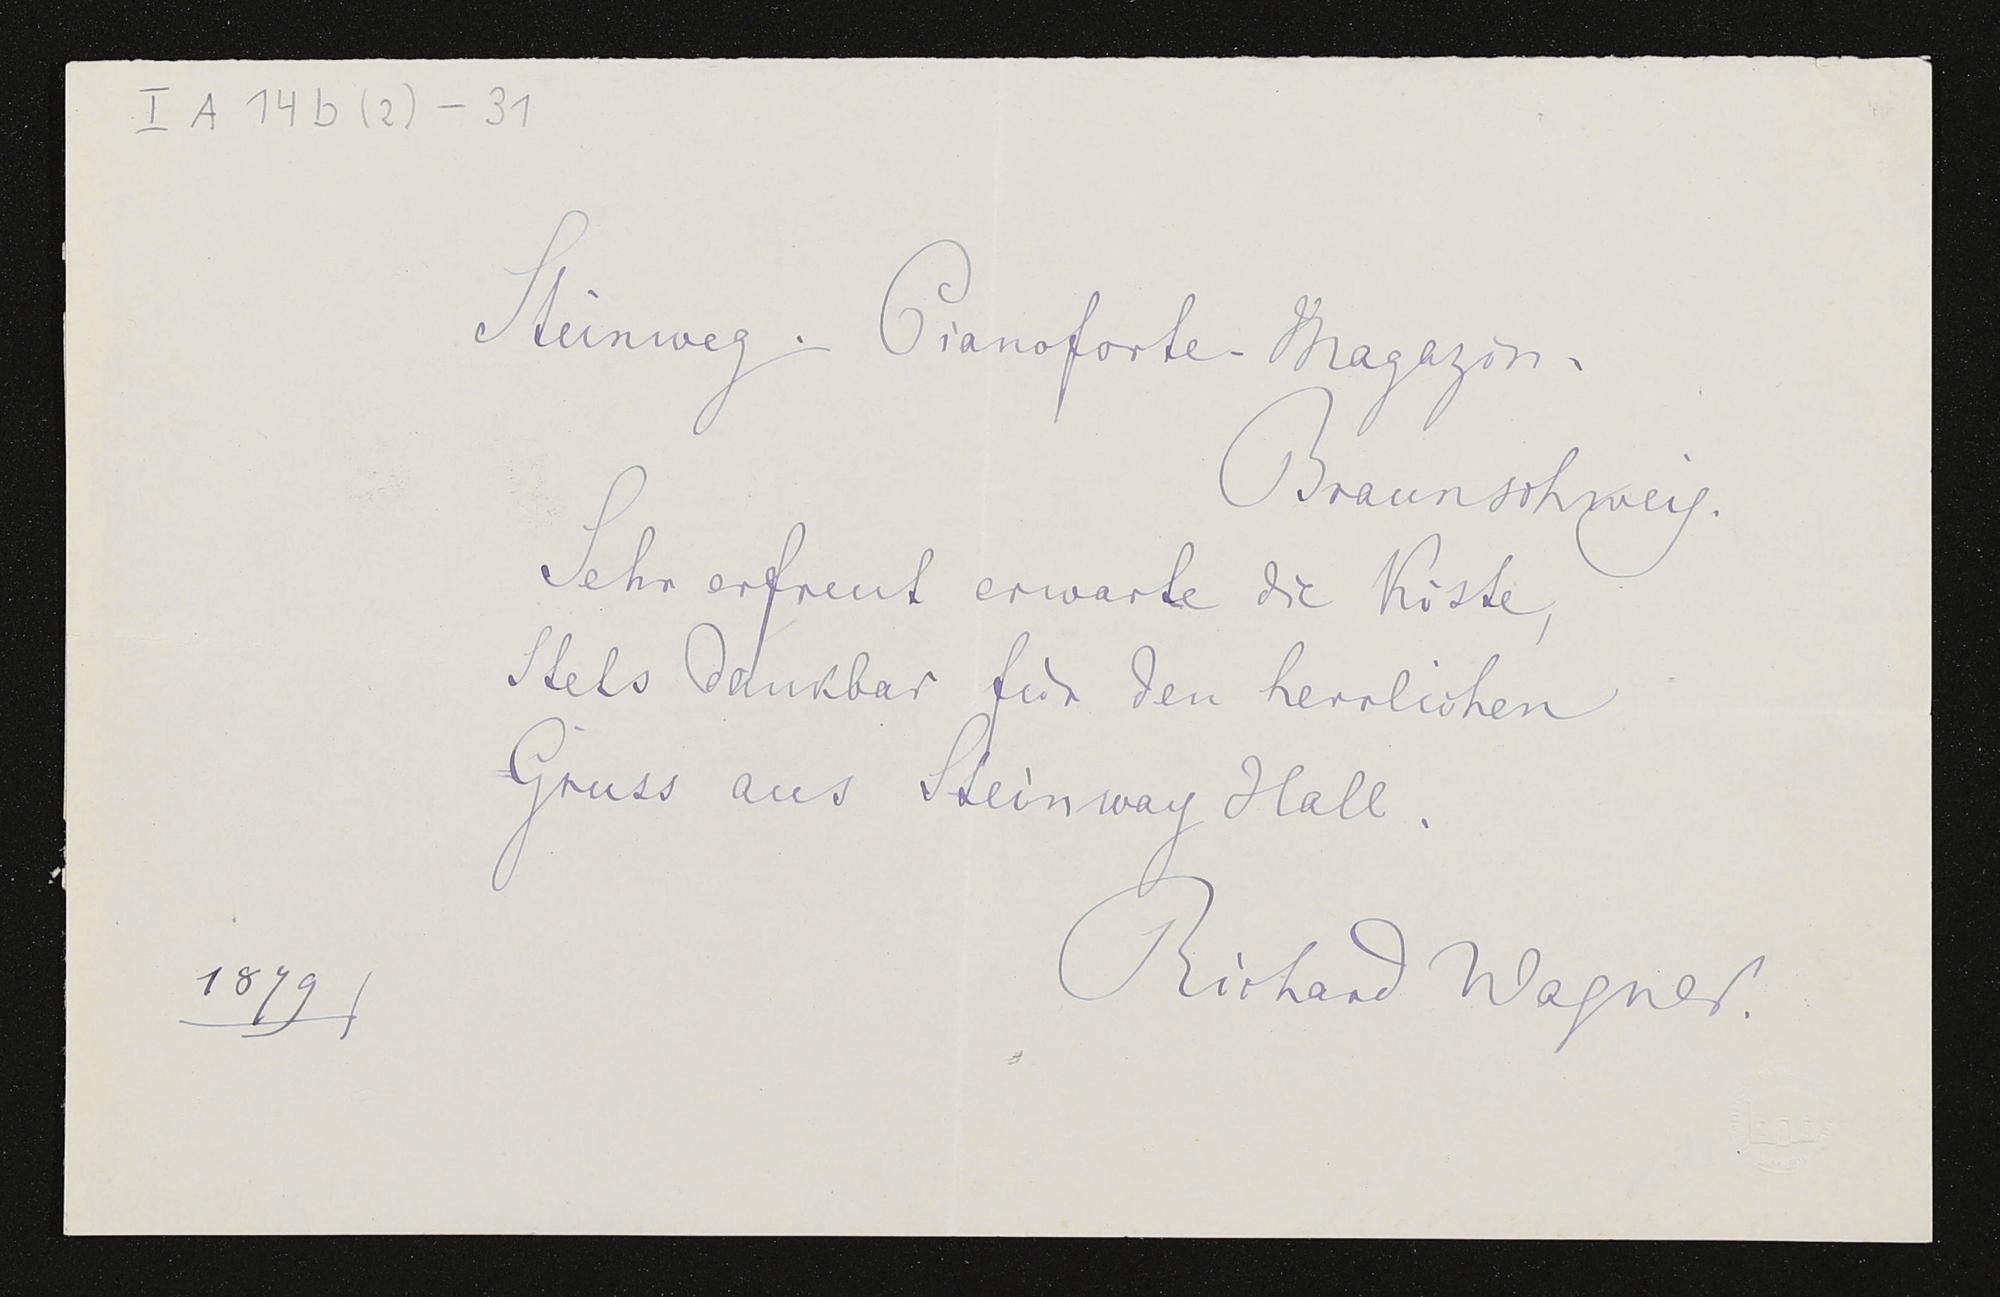 I A 14 b (2) - 31
Steinweg. - Pianoforte - Magazin.
Braunschweig.
Sehr erfreut erwarte die Kiste,
Stets dankbar für den herrlichen
Gruss aus Steinway Hall.
Richard Wagner.
1879